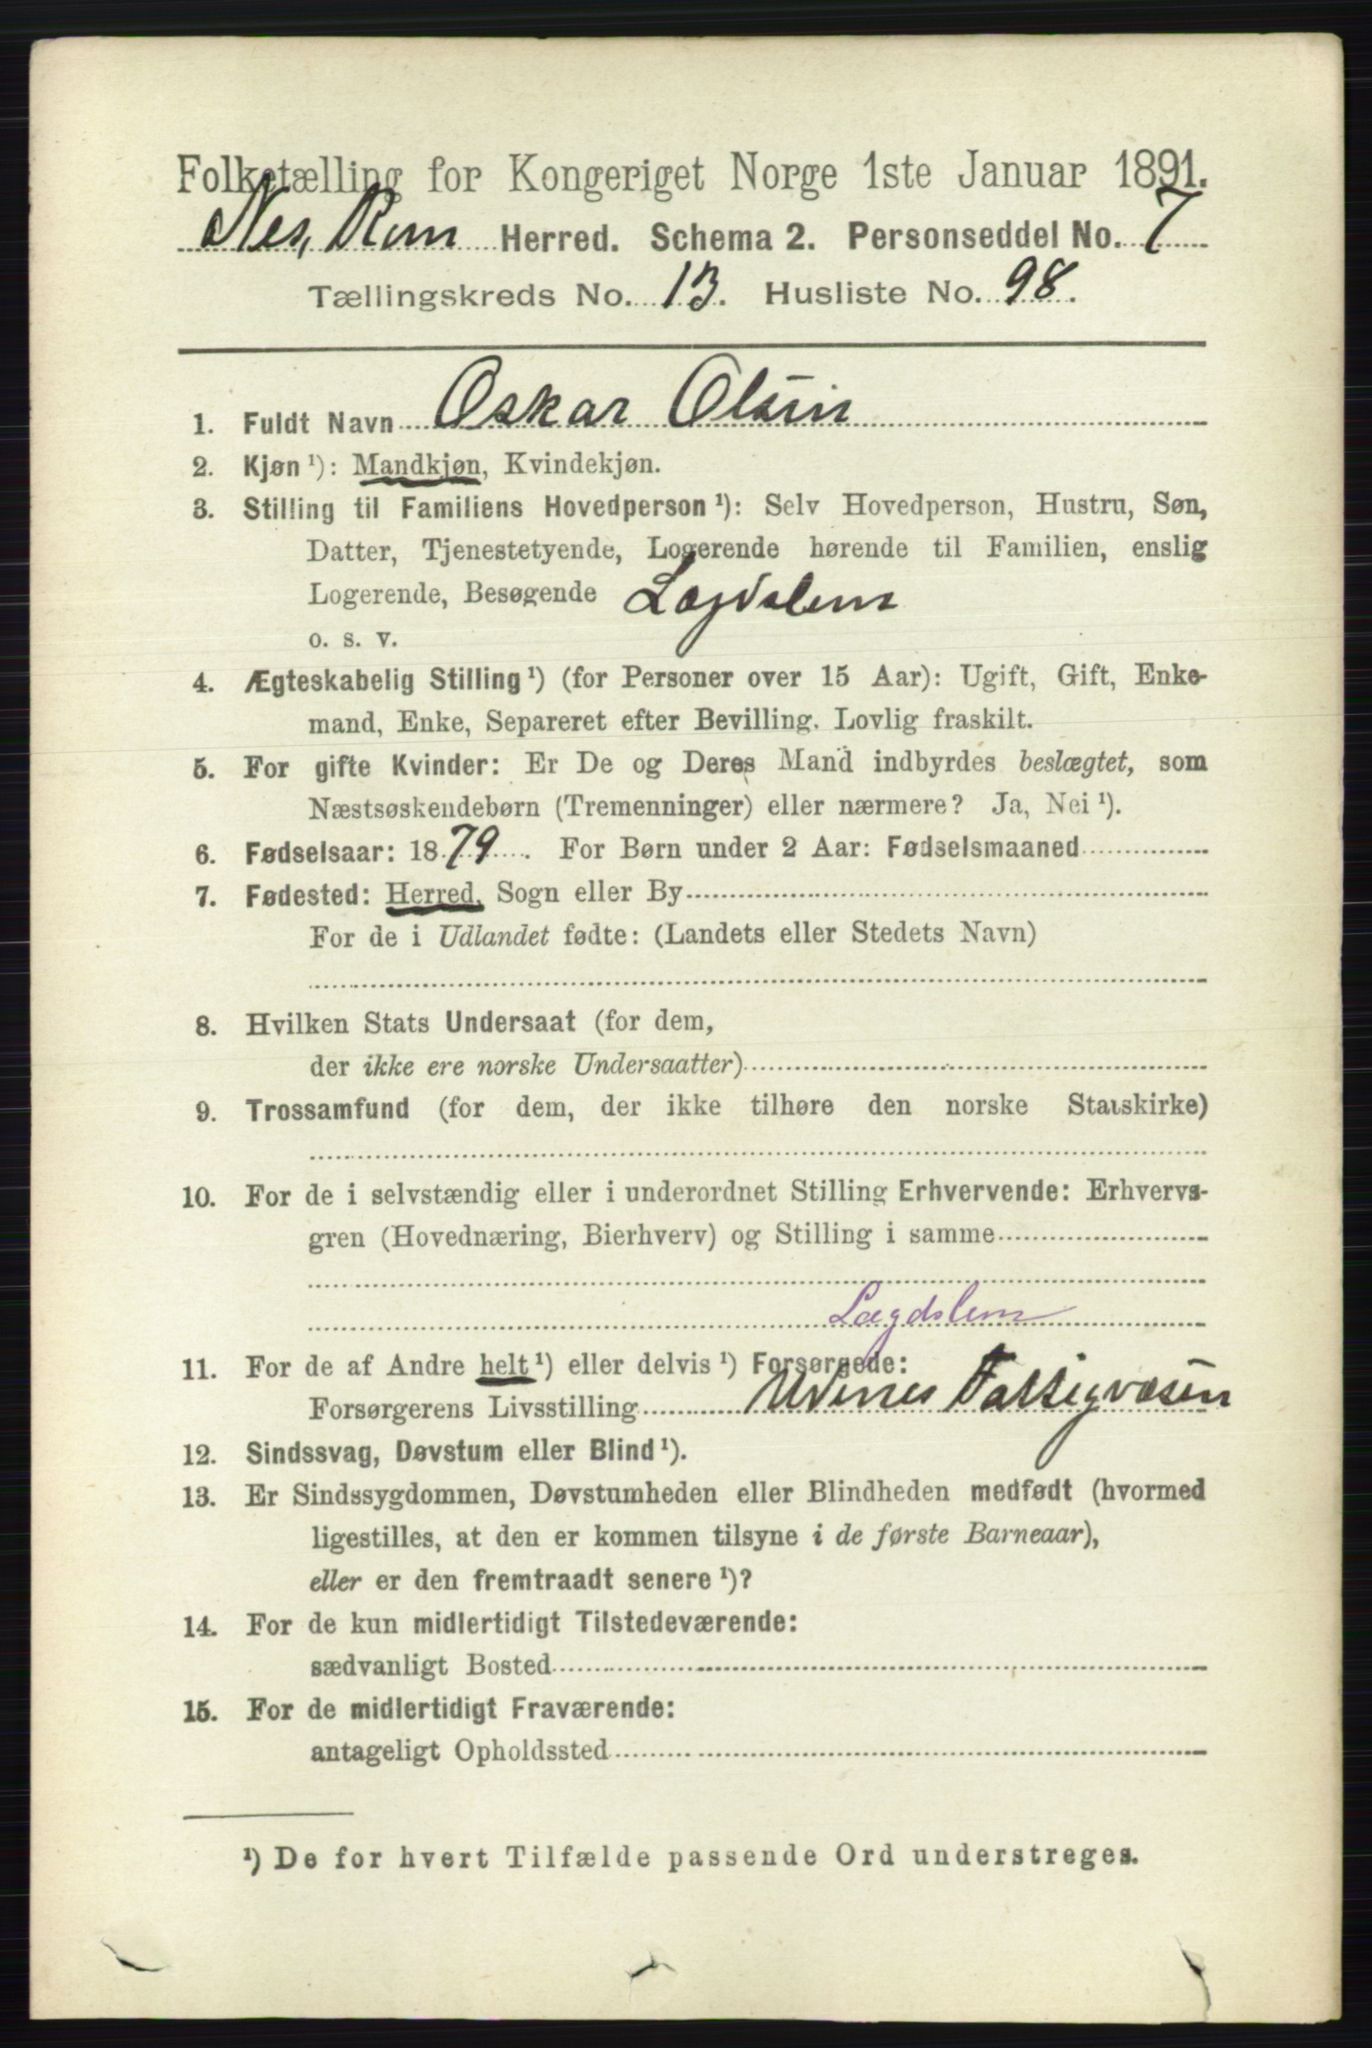 Folketælling for Kongeriget Norge 1ste Januar 1891.
Nes, Rom Herred. Schema 2. Personseddel No. 7
Tællingskreds No. 13. Husliste No. 98.
1. Fuldt Navn Oskar Olsen
2. Kjøn ¹): Mandkjøn, Kvindekjøn.
3. Stilling til Familiens Hovedperson ¹): Selv Hovedperson, Hustru, Søn,
Datter, Tjenestetyende, Logerende hørende til Familien, enslig
Logerende, Besøgende Lægdslem
o. s. v.
4. Ægteskabelig Stilling ¹) (for Personer over 15 Aar): Ugift, Gift, Enke-
mand, Enke, Separeret efter Bevilling. Lovlig fraskilt.
5. For gifte Kvinder: Er De og Deres Mand indbyrdes beslægtet, som
Næstsøskendebørn (Tremenninger) eller nærmere? Ja, Nei ¹).
6. Fødselsaar: 1879. For Børn under 2 Aar: Fødselsmaaned
7. Fødested: Herred, Sogn eller By
For de i Udlandet fødte: (Landets eller Stedets Navn)
8. Hvilken Stats Undersaat (for dem,
der ikke ere norske Undersaatter)
9. Trossamfund (for dem, der ikke tilhøre den norske Statskirke)
10. For de i selvstændig eller i underordnet Stilling Erhvervende: Erhvervs-
gren (Hovednæring, Bierhverv) og Stilling i samme
Lægdslem
11. For de af Andre helt ¹) eller delvis ¹) Forsørgede:
Forsørgerens Livsstilling Fattigvæsen
12. Sindssvag, Døvstum eller Blind ¹).
13. Er Sindssygdommen, Døvstumheden eller Blindheden medfødt (hvormed
ligestilles, at den er kommen tilsyne i de første Barneaar),
eller er den fremtraadt senere ¹)?
14. For de kun midlertidigt Tilstedeværende:
sædvanligt Bosted
15. For de midlertidigt Fraværende:
antageligt Opholdssted
¹) De for hvert Tilfælde passende Ord understreges.